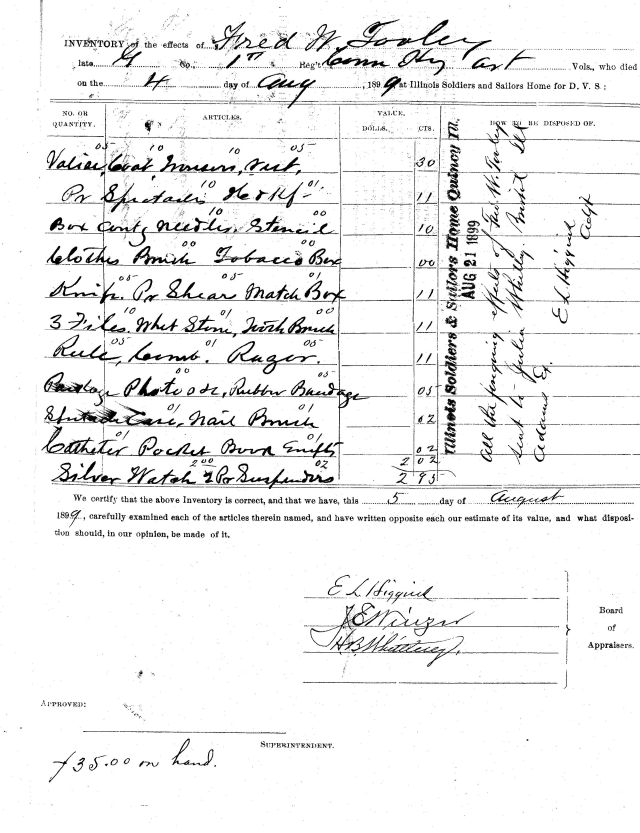 INVENTORY of the effects of Fred W. Tooley
late G Co., 1st Reg't Conn Hy Art Vols., who died
on the 4 day of Aug, 1899 at Illinois Soldiers and Sailors Home for D. V. S:
NO. OR QUANTITY. ARTICLES. VALUE. HOW TO BE DISPOSED OF.
DOLLS. CTS.
05 10 10 05
Valise, Coat, Trousers, Vest, 30
10 01
Pr Spectacles Hdkf 11
10 00
Box Contg Needles, Stencil 10
00 00
Clothes Brush Tobacco Box 00
05 05 01
Knife, Pr Shear Match Box 11
10 01
3 Files, Whet Stone, Tooth Brush 11
05 01 05
Rule, Comb, Razor. 11
05
Package Photo &c, Rubber Bandage 05
01 01
Case, Nail Brush 02
01 01
Catheter Pocket Book Empty 02
2.00 02
Silver Watch 2 Pr Suspenders 2 02
2 95
Illinois Soldiers & Sailors Home Quincy Ill.
AUG 21 1899
All the foregoing effects of Fred W. Tooley
sent to Julia Whitley, Ill
Adams Co.
E L Higgins
We certify that the above Inventory is correct, and that we have, this 5 day of August
1899, carefully examined each of the articles therein named, and have written opposite each our estimate of its value, and what disposi-
tion should, in our opinion, be made of it.
E L Higgins
H B Whitney
Board
of
Appraisers.
APPROVED:
SUPERINTENDENT.
35.00 on hand.